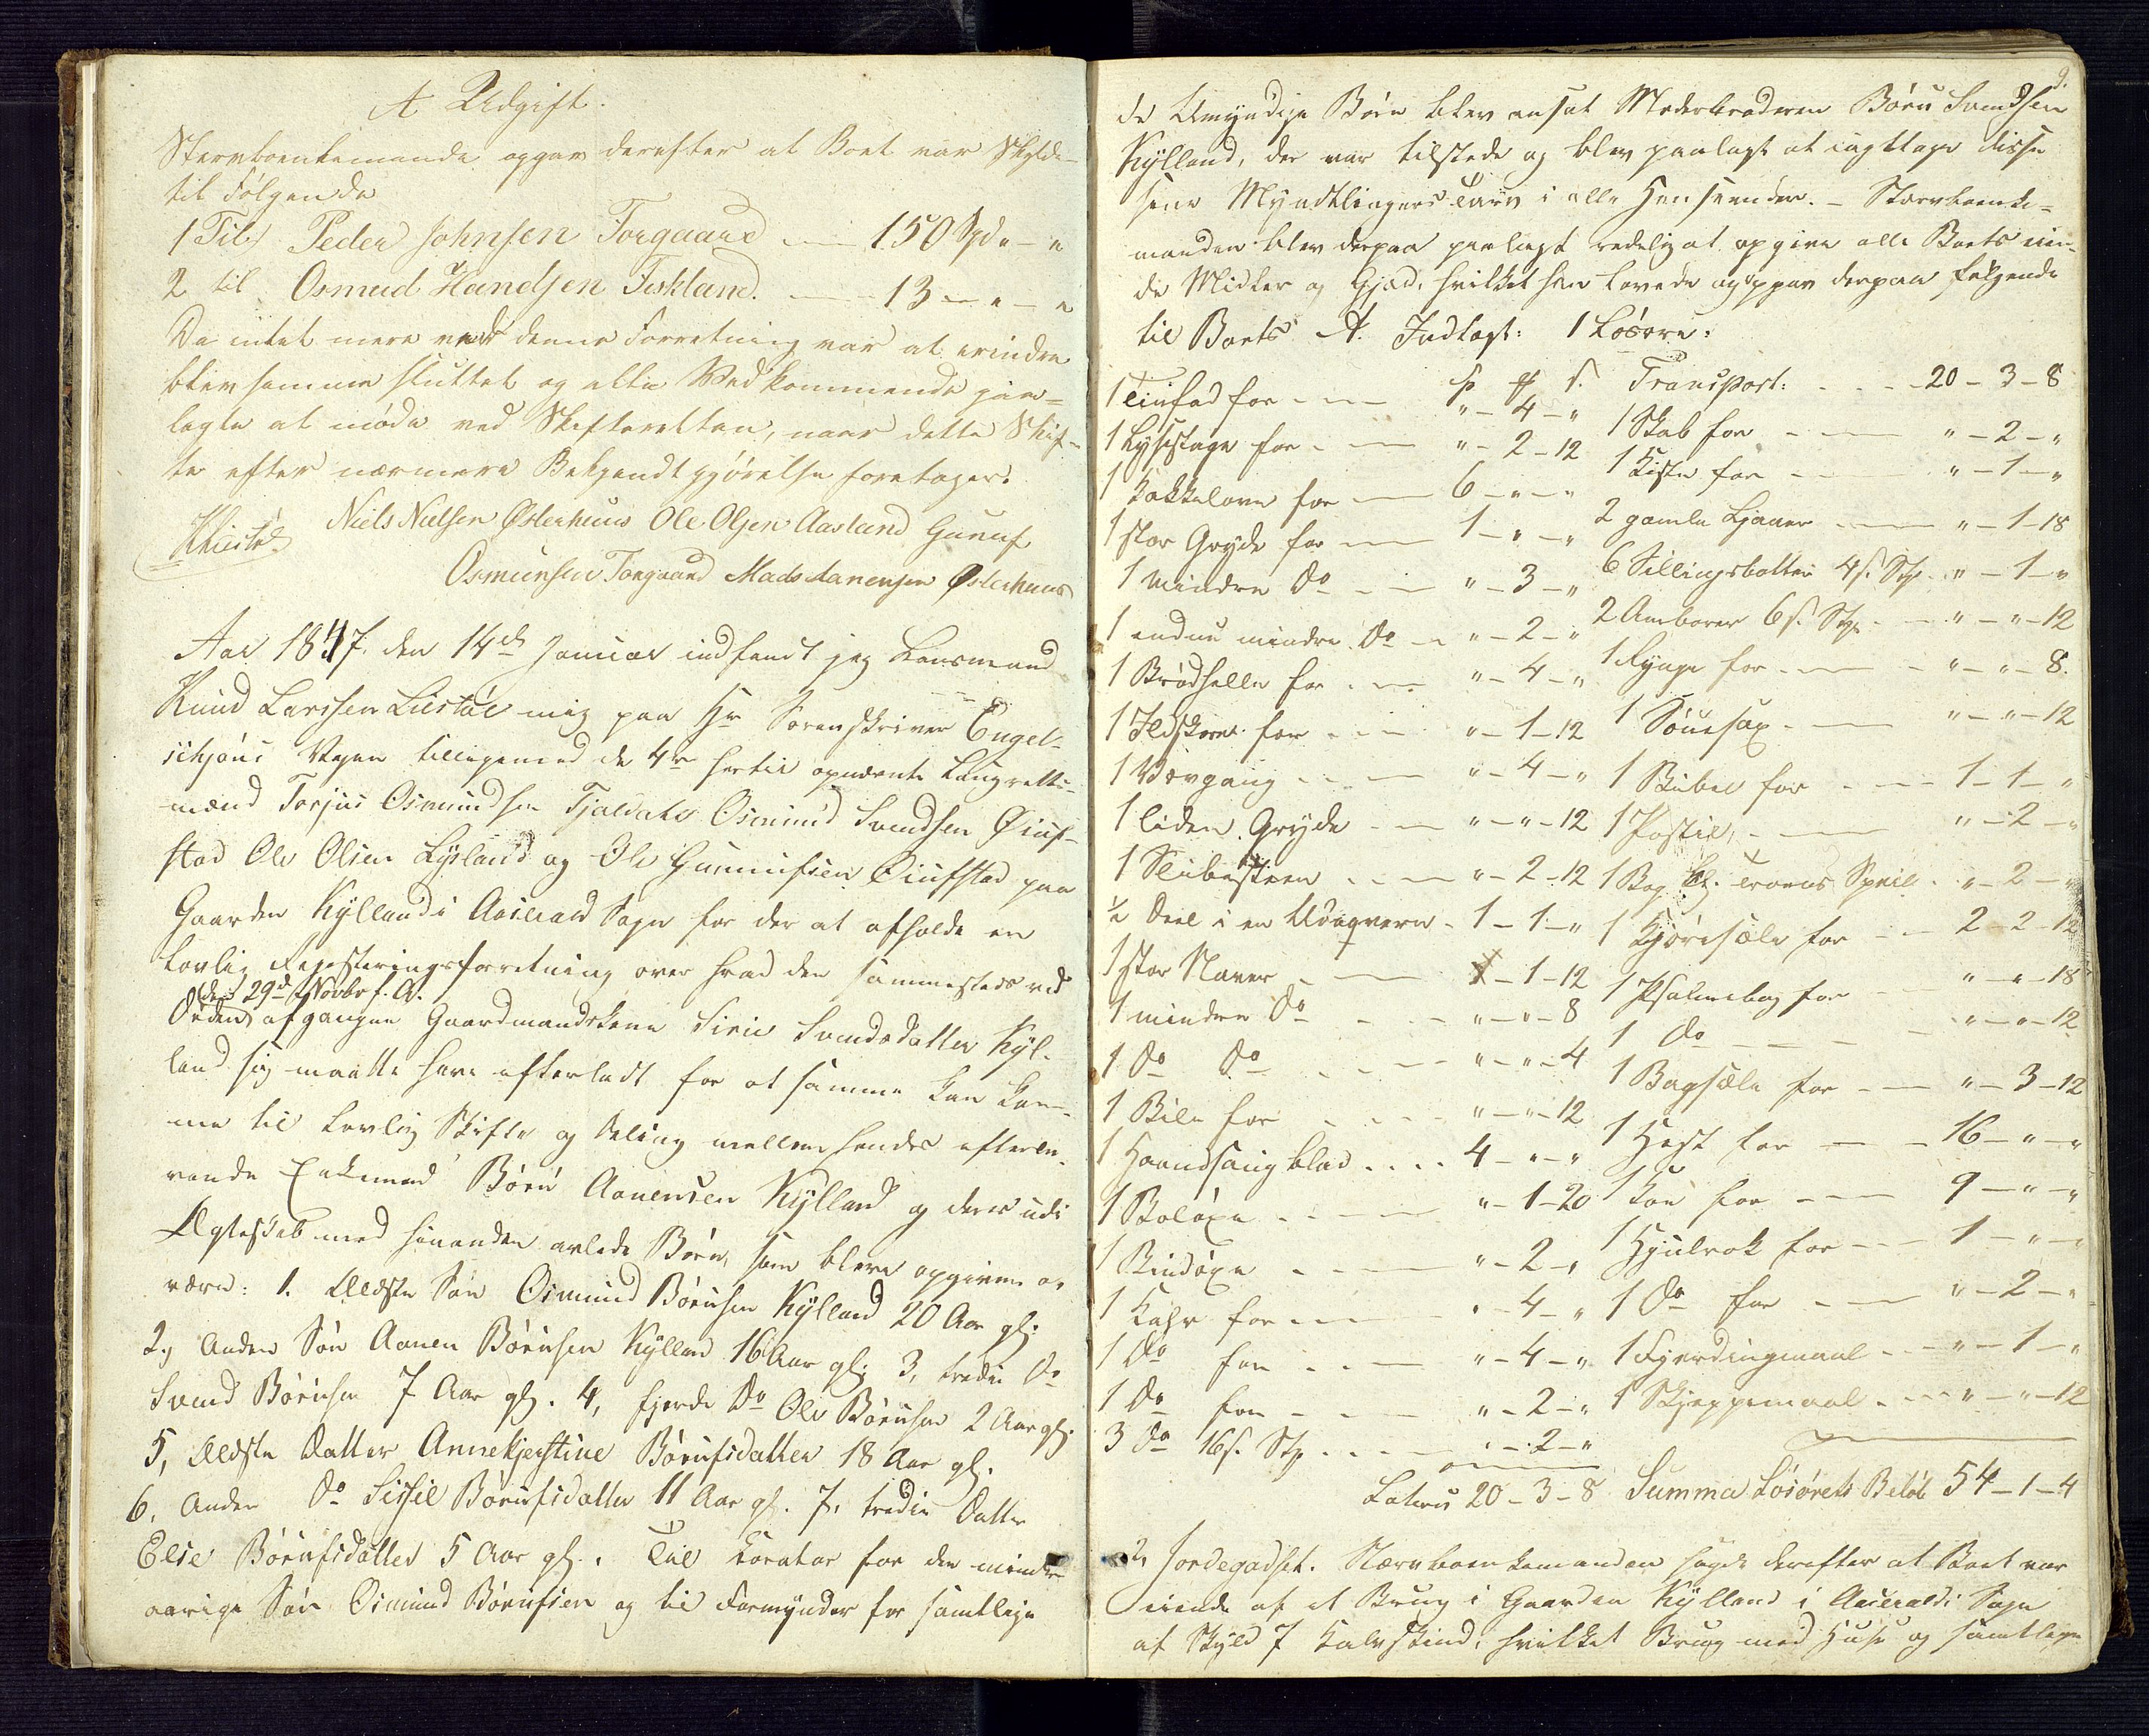 A Udgift.
Stervboenkemande opgav derefter at Boet var skyldi
til Følgende
1 Til Peder Johnsen Torgaard — 150 Spd " — "
2 til Osmud Handsen Fiskland. — 13 — " — "
Da intet mere ved denne Forretning var at erindre
blev samme sluttet og alle Vedkommende paa=
lagte at møde ved Skifteretten, naar dette Skif-
te efter nærmere Bekjendtgjørelse foretages.
KLiestøl Niels Nielsen Østerhuus Ole Olsen Aasland Gunuf
Osmunsen Torgaard Mads Aanensen Østerhuus
Aar 1847. den 14de Januar indfandt jeg Lensmand
Knud Larssen Liestøl mig paa Hr Sorenskriver Engel-
schjøns Vegne tilligemed de 4re hertil opnævnte Laugrettes-
mænd Torjus Osmundsen Osmund Svendsen Øiuf-
stad Ole Olsen Lysland og Ole Gunnufsen Øiufstad paa
Gaarden Kylland i Aaserald Sogn for der at afholde en
Lovlig Registeringsforretning over hvad den sammesteds ved
den 29de Novbr f. A.
Døden afgangne Gaardmandskone Sirie Svendsdatter Kyl-
land sig maatte have efterladt for at samme kan kom-
me til Lovlig Skifte og Deling mellem hendes efterle-
vende Enkemand Børu Aanensen Kylland og deres udi
Ægteskab med hinanden avlede Børn, som bleve opgivne at
være: 1. Ældste Søn Osmund Børusen Kylland 20 Aar gl.
2, Anden Søn Aanen Børusen Kylland 16 Aar gl. 3, tredie Do
Svend Børusen 7 Aar gl. 4, fjerde Do Ole Børusen 2 Aar gl.
5, Ældste Datter Annekjerstine Børufsdatter 18 Aar gl.
6, Anden Do Sissel Børufsdatter 11 Aar gl. 7, tredie Datter
Else Børufsdatter 5 Aar gl. Til Korator for den minder
aarige Søn Osmund Børufsen og til Formynder for samtlige
9.
de Umyndige Børn blev ansat Moderbroderen Børu Svendsen
Kylland, der var tilstede og blev paalagt at iagttage disse
sine Myndtlingers Tarv i alle Henseender. — Stervboenke=
manden blev derpaa paalagt redelig at opgive alle Boets eien-
de Midler og Gjæld, hvilket han lovede og opgav derpaa følgende
til Boets A. Indtægt: 1 Løsøre:
1 Tinfad for — " — 4 — "
1 Lysestage for — " — 2 — 12
1 Kakkelovn for — 6 — " — "
1 stor Gryde for — 1 — " — "
1 mindre Do — " — 3 — "
1 endnu mindre Do — " — 2 — "
1 Brødhelle for — " — 4 — "
1 Ildskovel for — " — 1 — 12
1 Vævgang — " — 4 — "
1 liden Gryde — " — " — 12
1 Slibesteen — " — 2 — 12
½ Deel i en — 1 — 1 — "
1 stor Naver — 1 — 12
1 mindre Do — " — " — 8
1 Do Do — " — " — 4
1 Bile for — " — " — 12
1 Haandsaugblad — 4 — " — "
1 Boløxe — " — 1 — 20
1 Bindøxe — " — 2 — "
1 Kahr for — " — 4 — "
1 Do for — " — 4 — "
1 Do for — " — 2 — "
3 Do 16 s. Stk — " — 2 — "
Lateris 20 — 3 — 8
Transport: — 20 — 3 — 8
1 Skab for — " — 2 — "
1 Kiste for — " — 1 — "
2 gamle Ljaaer — " — 1 — 18
6 Sillingsbøtter 4 s. Stk — " — 1 — "
2 Amborer 6 s. Stk — " — " — 12
1 for — " — " — 8.
1 Souesax — " — " — 12
1 Bibel for — 1 — 1 — "
1 Postil, — " — 2 — "
1 Bog kl. Troens Speil — " — 2 — "
1 Kjøresæle for — 2 — 2 — 12
1 Psalmebog for — " — " — 18
1 Do — " — " — 12
1 Bagsæle for — " — 3 — 12
1 Hest for — 16 — " — "
1 Koe for — 9 — " — "
1 Hjulrok for — 1 — " — "
1 Do for — " — 2 — "
1 Fjerdingmaal — " — 1 — "
1 Skjeppemaal — " — " — 12
Summa Løsørets Beløb 54 — 1 — 4
2, Jordegodset. Stervboenkemanden sagde derefter at Boet var
eiende af et Brug i Gaarden Kylland i Aaseralds Sogn
af Skyld 7 Kalvskind, hvilket Brug med Huse og samtlige